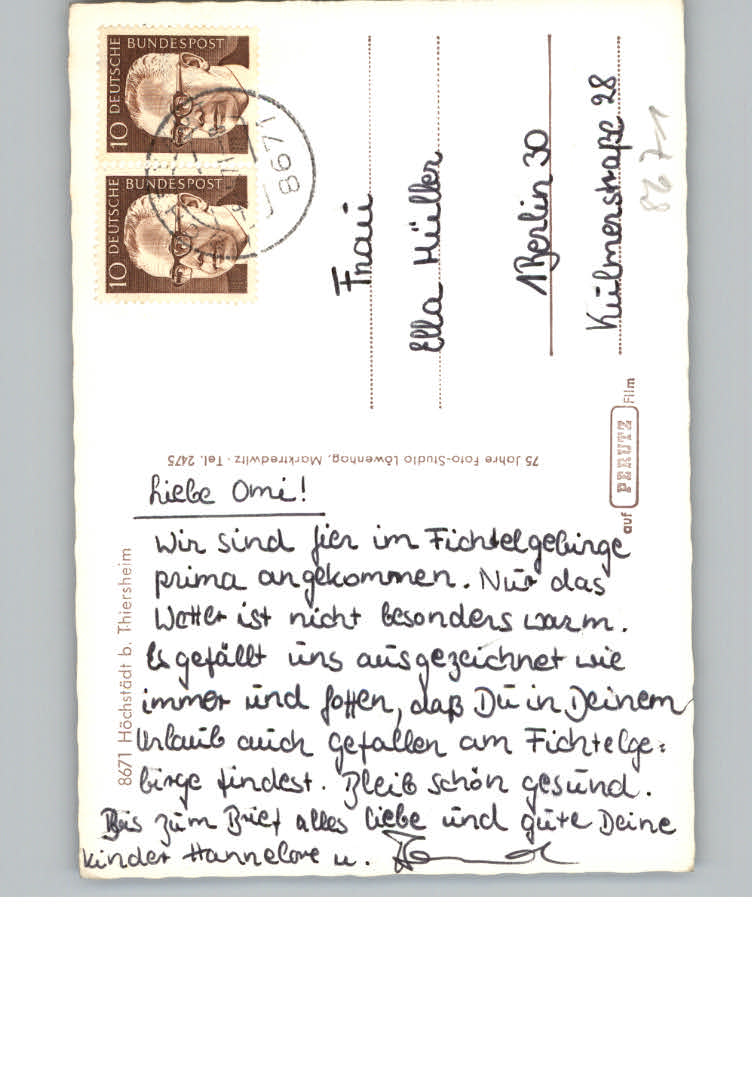 10 DEUTSCHE BUNDESPOST
10 DEUTSCHE BUNDESPOST
8671
Frau
Ella Müller
1 Berlin 30
Kulmerstraße 28
8671
75 Jahre Foto-Studio Löwenhag, Marktredwitz · Tel. 2475
auf PERUTZ Film
8671 Höchstädt b. Thiersheim
Liebe Omi!
Wir sind hier im Fichtelgebirge
prima angekommen. Nur das
Wetter ist nicht besonders warm.
Es gefällt uns ausgezeichnet wie
immer und hoffen, daß Du in Deinem
Urlaub auch Gefallen am Fichtelge=
birge findest. Bleib schön gesund.
Bis zum Brief alles liebe und gute Deine
Kinder Hannelore u.